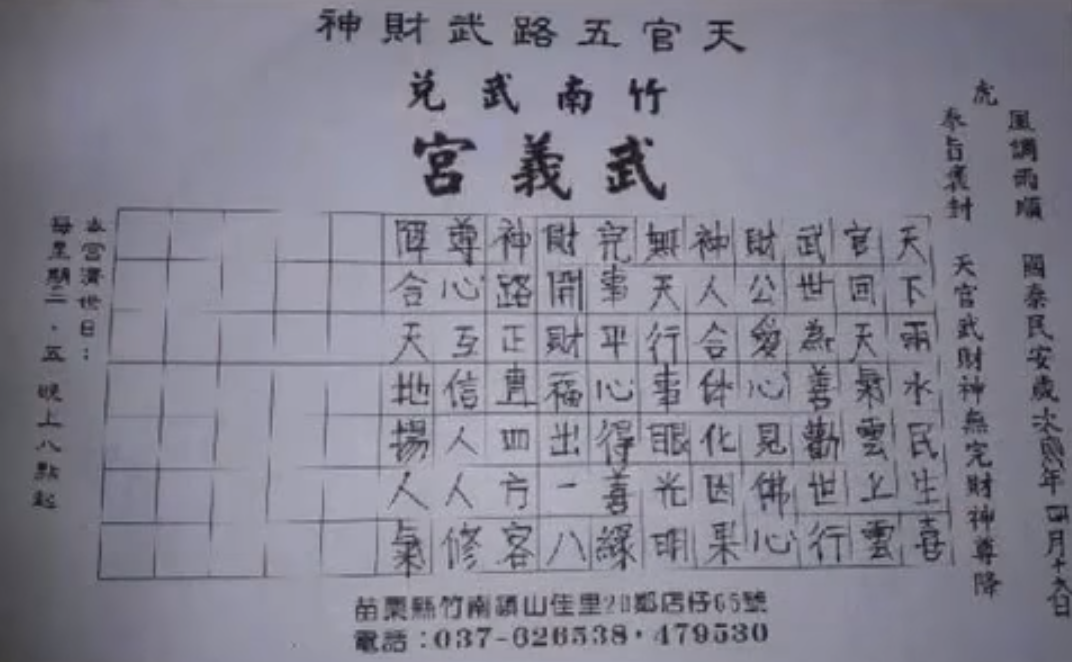 天官五路武財神
竹南武兌
武義宮
虎
風調雨順 國泰民安歲次年四月十六日
奉旨褒封 天官武財神無完財神尊降
天下雨水民生喜
官回天氣雲上雲
武世為善勸世行
財公愛心見佛心
神人合体化因果
無天行事眼光明
完事平心得善緣
財開財福出一八
神路正直四方客
尊心互信人人修
降合天地揚人氣
本宮濟世日：
每星期二．五 晚上八點起
苗栗縣竹南鎮山佳里20鄰店仔65號
電話：037-626538·479530